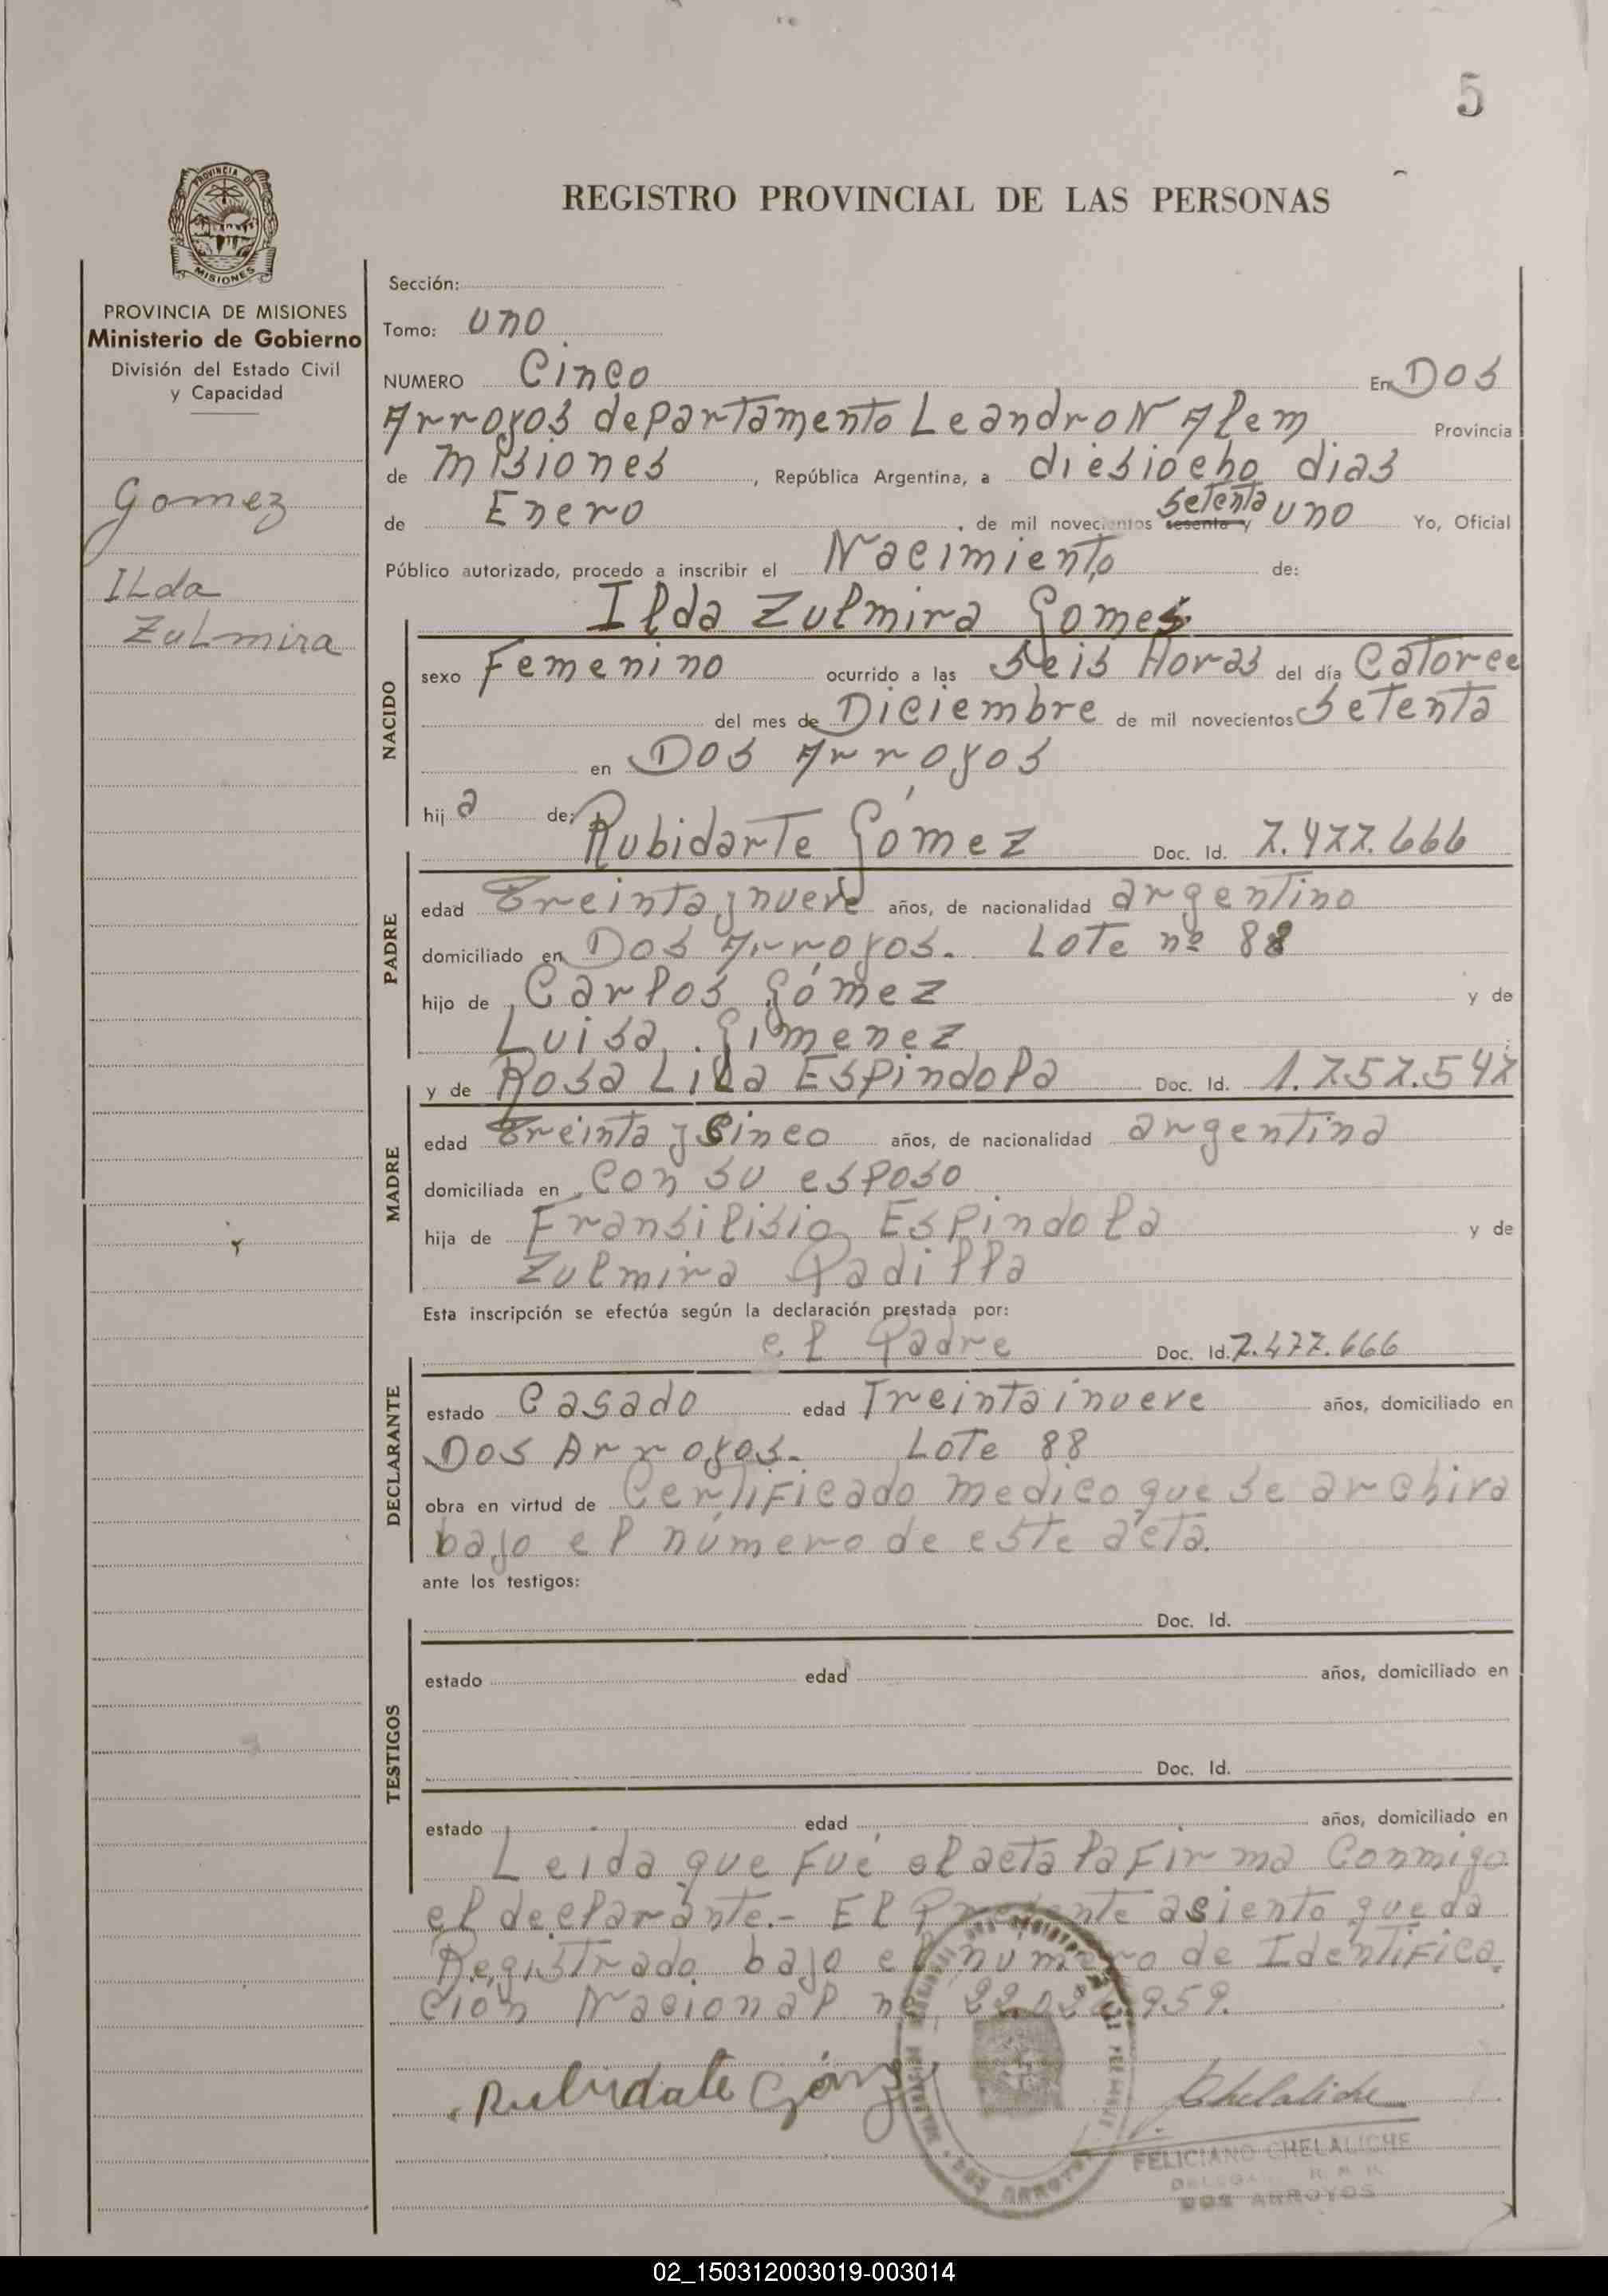 5
REGISTRO PROVINCIAL DE LAS PERSONAS
PROVINCIA DE
MISIONES
PROVINCIA DE MISIONES
Ministerio de Gobierno
División del Estado Civil
y Capacidad
Gomez
ILda
Zulmira
Sección:
Tomo: uno
NUMERO Cinco En Dos
Arroyos departamento Leandro N Alem Provincia
de misiones, República Argentina, a diesiocho dias
de Enero, de mil novecientos sesenta y setenta uno Yo, Oficial
Público autorizado, procedo a inscribir el Nacimiento de:
Ilda Zulmira Gomes
NACIDO
sexo Femenino ocurrido a las Seis Horas del día Catorce
del mes de Diciembre de mil novecientos Setenta
en Dos Arroyos
hija de: Rubidarte Gómez Doc. Id. 7.477.666
PADRE
edad Treinta y nueve años, de nacionalidad argentino
domiciliado en Dos Arroyos. Lote nº 88
hijo de Carlos Gómez y de
Luisa Gimenez
y de Rosa Lila Espindola Doc. Id. 1.757.547
MADRE
edad Treinta y Cinco años, de nacionalidad argentina
domiciliada en con su esposo
hija de Fransilisio Espindola y de
Zulmira Padilla
Esta inscripción se efectúa según la declaración prestada por:
el Padre Doc. Id. 7.477.666
DECLARANTE
estado Casado edad Treinta i nueve años, domiciliado en
Dos Arroyos. Lote 88
obra en virtud de Certificado medico que se archiva
bajo el número de este acta.
ante los testigos:
TESTIGOS
Doc. Id.
estado edad años, domiciliado en
Doc. Id.
estado edad años, domiciliado en
Leida que fué el acta la Firma Conmigo
el declarante.- El Presente asiento queda
Registrado bajo el número de Identifica
ción Nacional nº
Rubidarte Gómez
Chelaliche
FELICIANO CHELALICHE
DOS ARROYOS
02_150312003019-003014